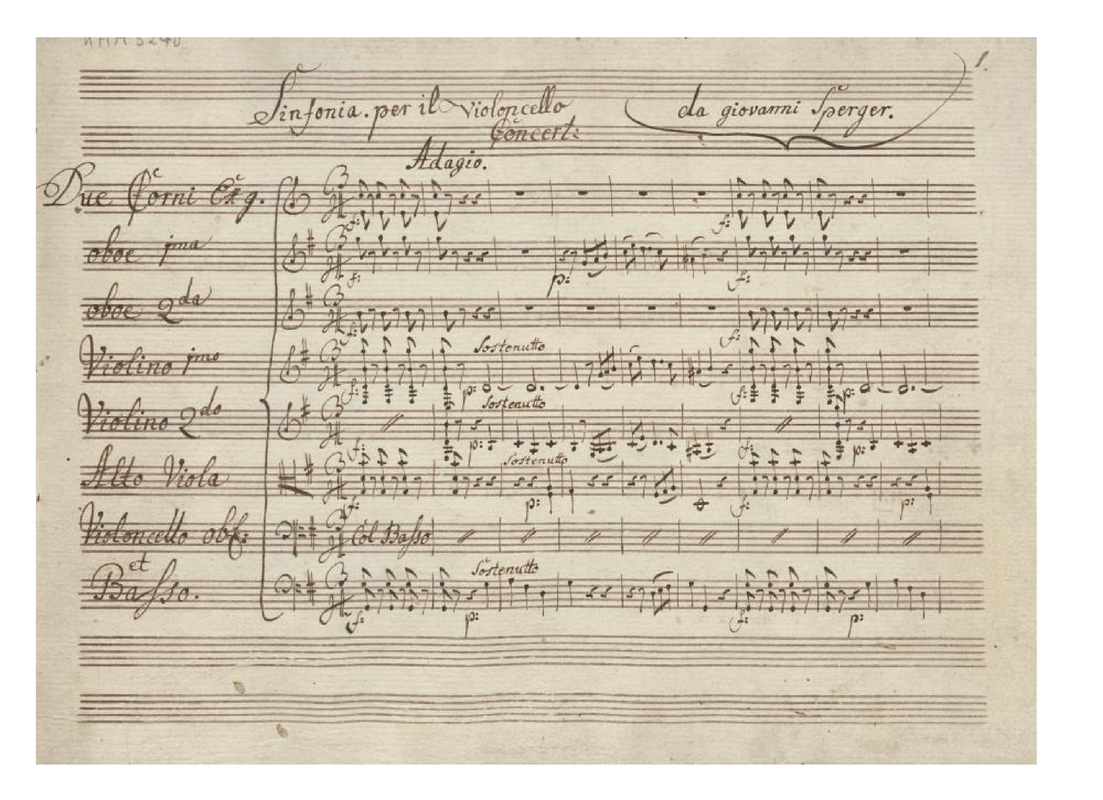 1.
Sinfonia. per il Violoncello da giovanni Sperger.
Concert:
Adagio.
Due Corni Ex g.
f:
oboe jma
f: p: f:
oboe 2da
f: f:
Violino jmo Sostenutto
f: p: f: p:
Violino 2do Sostenutto
f: p: f: p:
Alto Viola Sostenutto
f: p: f: p:
Violoncello obl: Col Basso
et
Basso. Sostenutto
f: p: f: p: